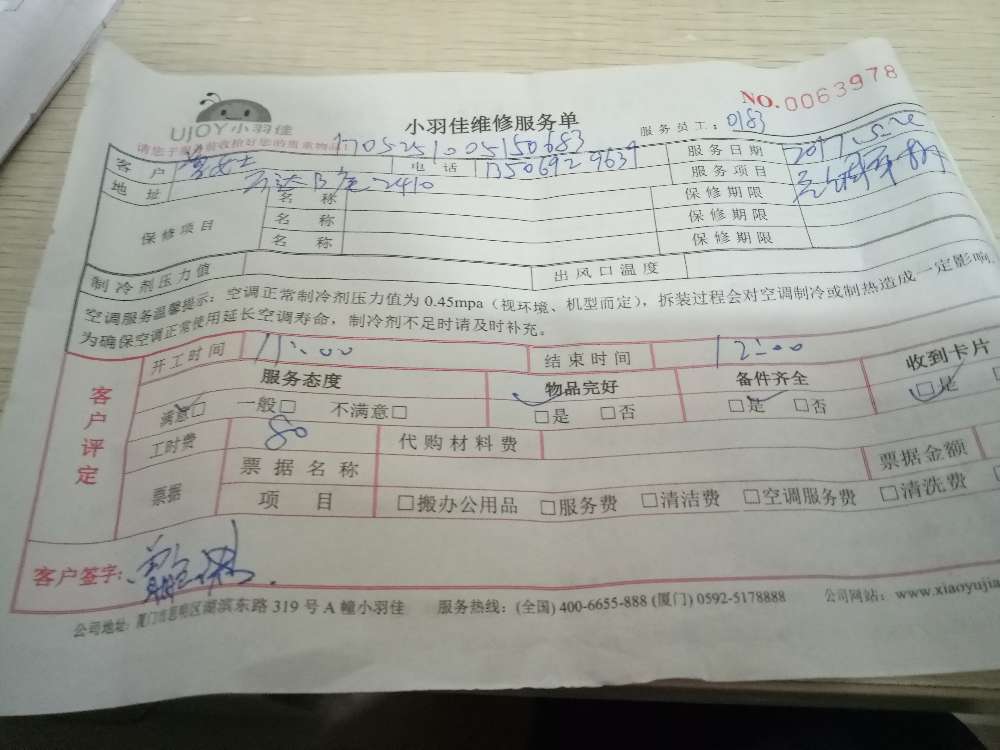 UJOY小羽佳
小羽佳维修服务单
NO.0063978
服务员工：0183
请您于服务前收拾好您的贵重物品
1705251005150683
客户 电话 13506929639 服务日期 2017.5.26
地址 万达B座2410 服务项目
保修项目 名称 保修期限
名称 保修期限
名称 保修期限
制冷剂压力值 出风口温度
空调服务温馨提示：空调正常制冷剂压力值为 0.45mpa（视环境、机型而定），拆装过程会对空调制冷或制热造成一定影响.
为确保空调正常使用延长空调寿命，制冷剂不足时请及时补充。
客户评定
开工时间 11:00 结束时间 12:00
服务态度 物品完好 备件齐全 收到卡片
满意□ 一般□ 不满意□ □是 □否 □是 □否 □是
工时费 80 代购材料费
票据 票据名称 票据金额
项目 □搬办公用品 □服务费 □清洁费 □空调服务费 □清洗费
客户签字:
公司地址: 厦门市思明区湖滨东路 319 号 A 幢小羽佳 服务热线: (全国) 400-6655-888 (厦门) 0592-5178888 公司网站: www.xiaoyujia